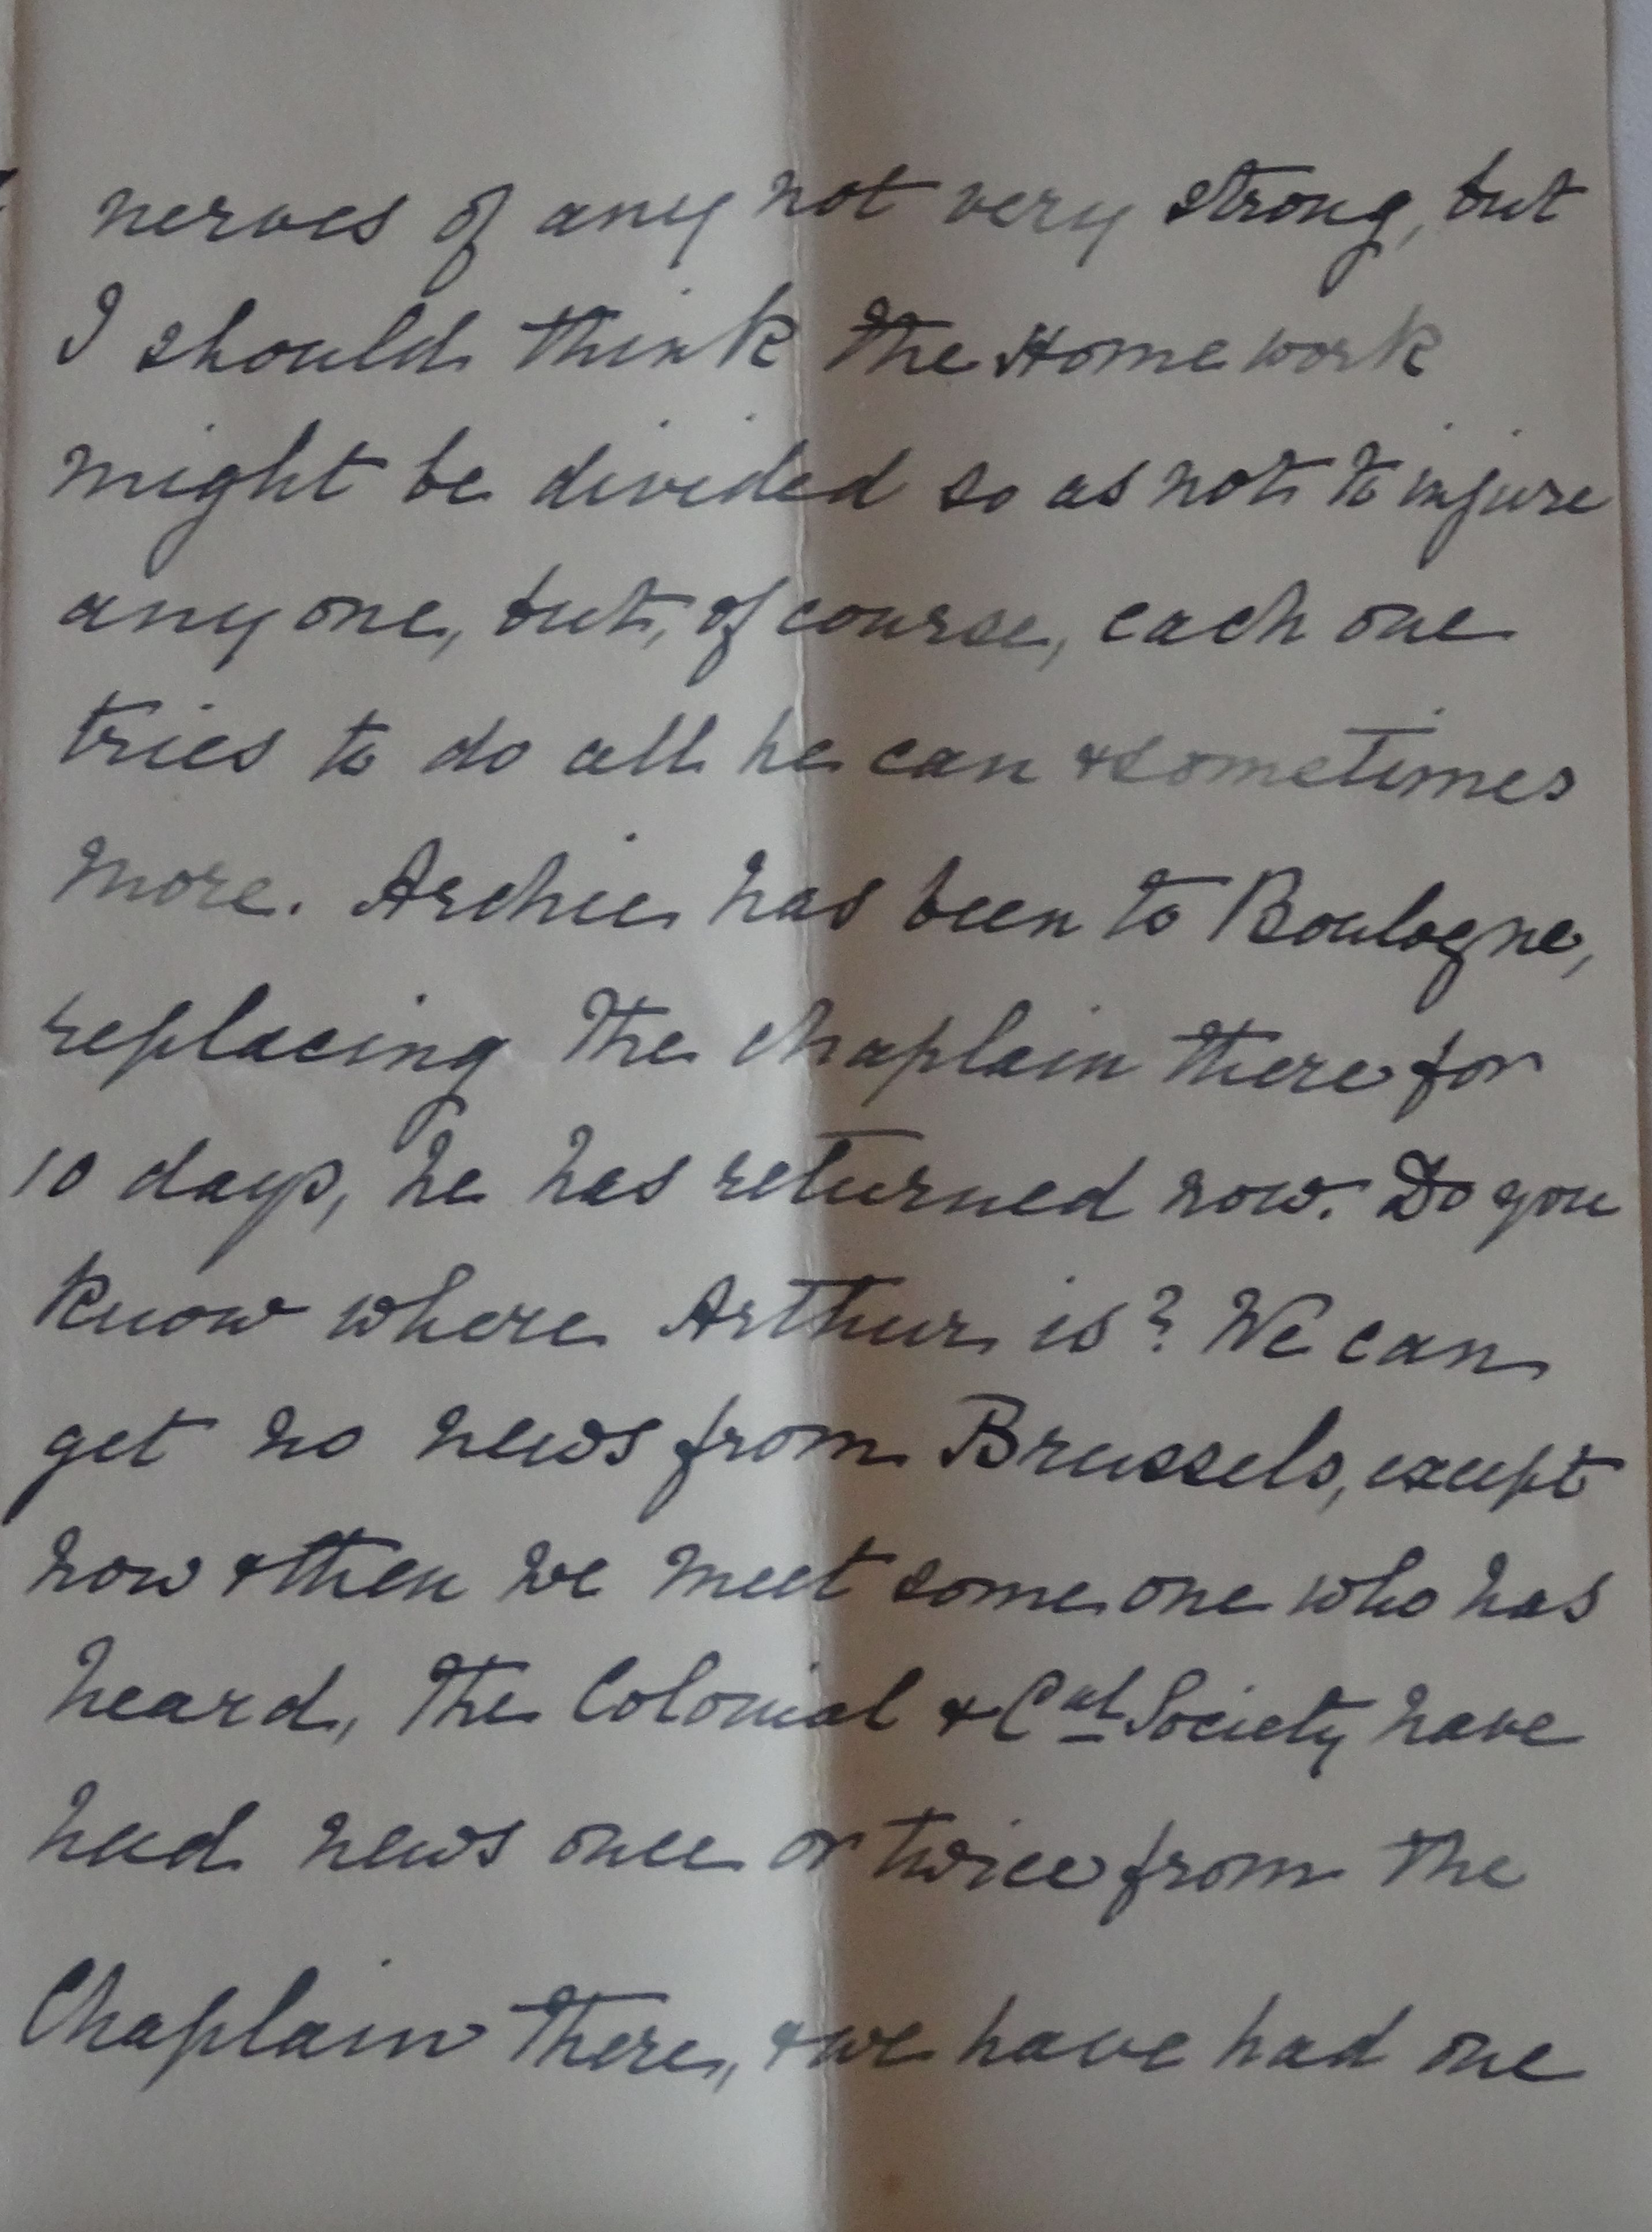 nerves of any not very strong, but
I should think the Home work
might be divided so as not to injure
any one, but, of course, each one
tries to do all he can & sometimes
more. Archie has been to Boulogne,
replacing the chaplain there for
10 days, he has returned now. Do you
know where Arthur is? We can
get no news from Brussels, except
now & then we meet some one who has
heard, the Colonial & Cal Society have
had news once or twice from the
Chaplain there, & we have had one